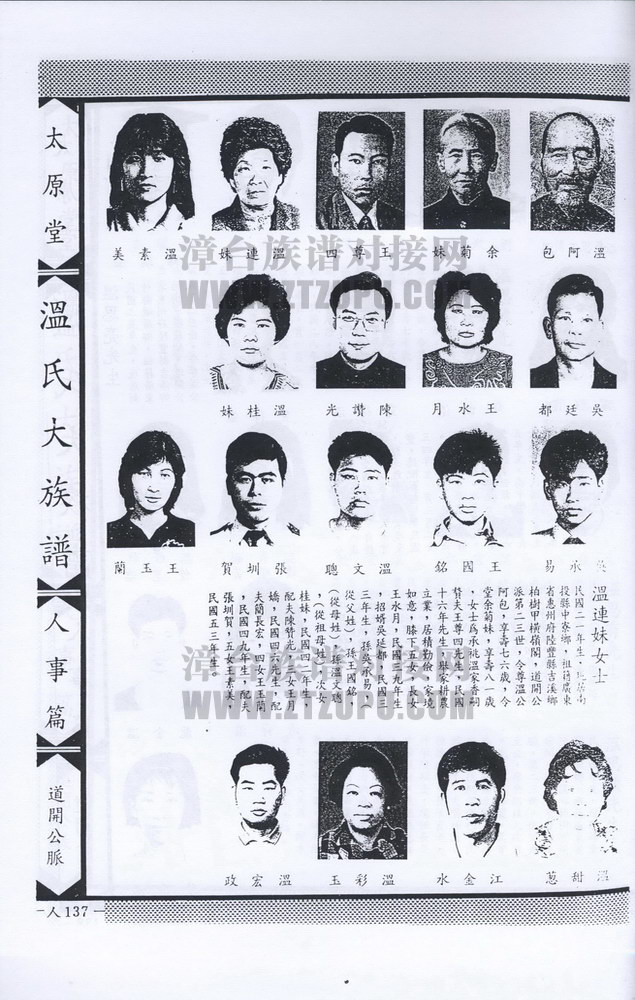 太原堂
溫氏大族譜
人事篇
道開公脈
人137
溫阿包
余菊妹
王尊四
溫連妹
溫素美
吳廷都
王水月
陳讚光
溫桂妹
吳承易
王國銘
溫文聰
張圳賀
王玉蘭
溫連妹女士
民國二一年生，現居南
投縣中寮鄉，祖籍廣東
省惠州府陸豐縣吉溪鄉
柏樹甲橫嶺閣，道開公
派第二三世，令尊溫公
阿包，享壽七六歲，令
堂余菊妹，享壽八一歲
，女士為承祧溫家香祠
贅夫王尊四先生，民國
十六年生，舉家耕農
立業，居積勤儉，家境
如意，膝下五女，長女
王水月，民國三九年生
，招婿吳延都，民國三
三年生，孫吳承易，
從父姓），孫王國銘，
（從母姓），孫溫文聰
，（從祖母姓），次女
桂妹，民國四二年生，
配夫陳贊光，三女王月
嬌，民國四六年生，配
夫簡長宏，四女王玉蘭
，民國四九年生，配夫
張圳賀，五女王素美，
民國五三年生。
溫甜蔥
江金水
溫彩玉
溫宏政
漳台族谱对接网
WWW.ZTZUPU.COM
漳台族谱对接网
WWW.ZTZUPU.COM